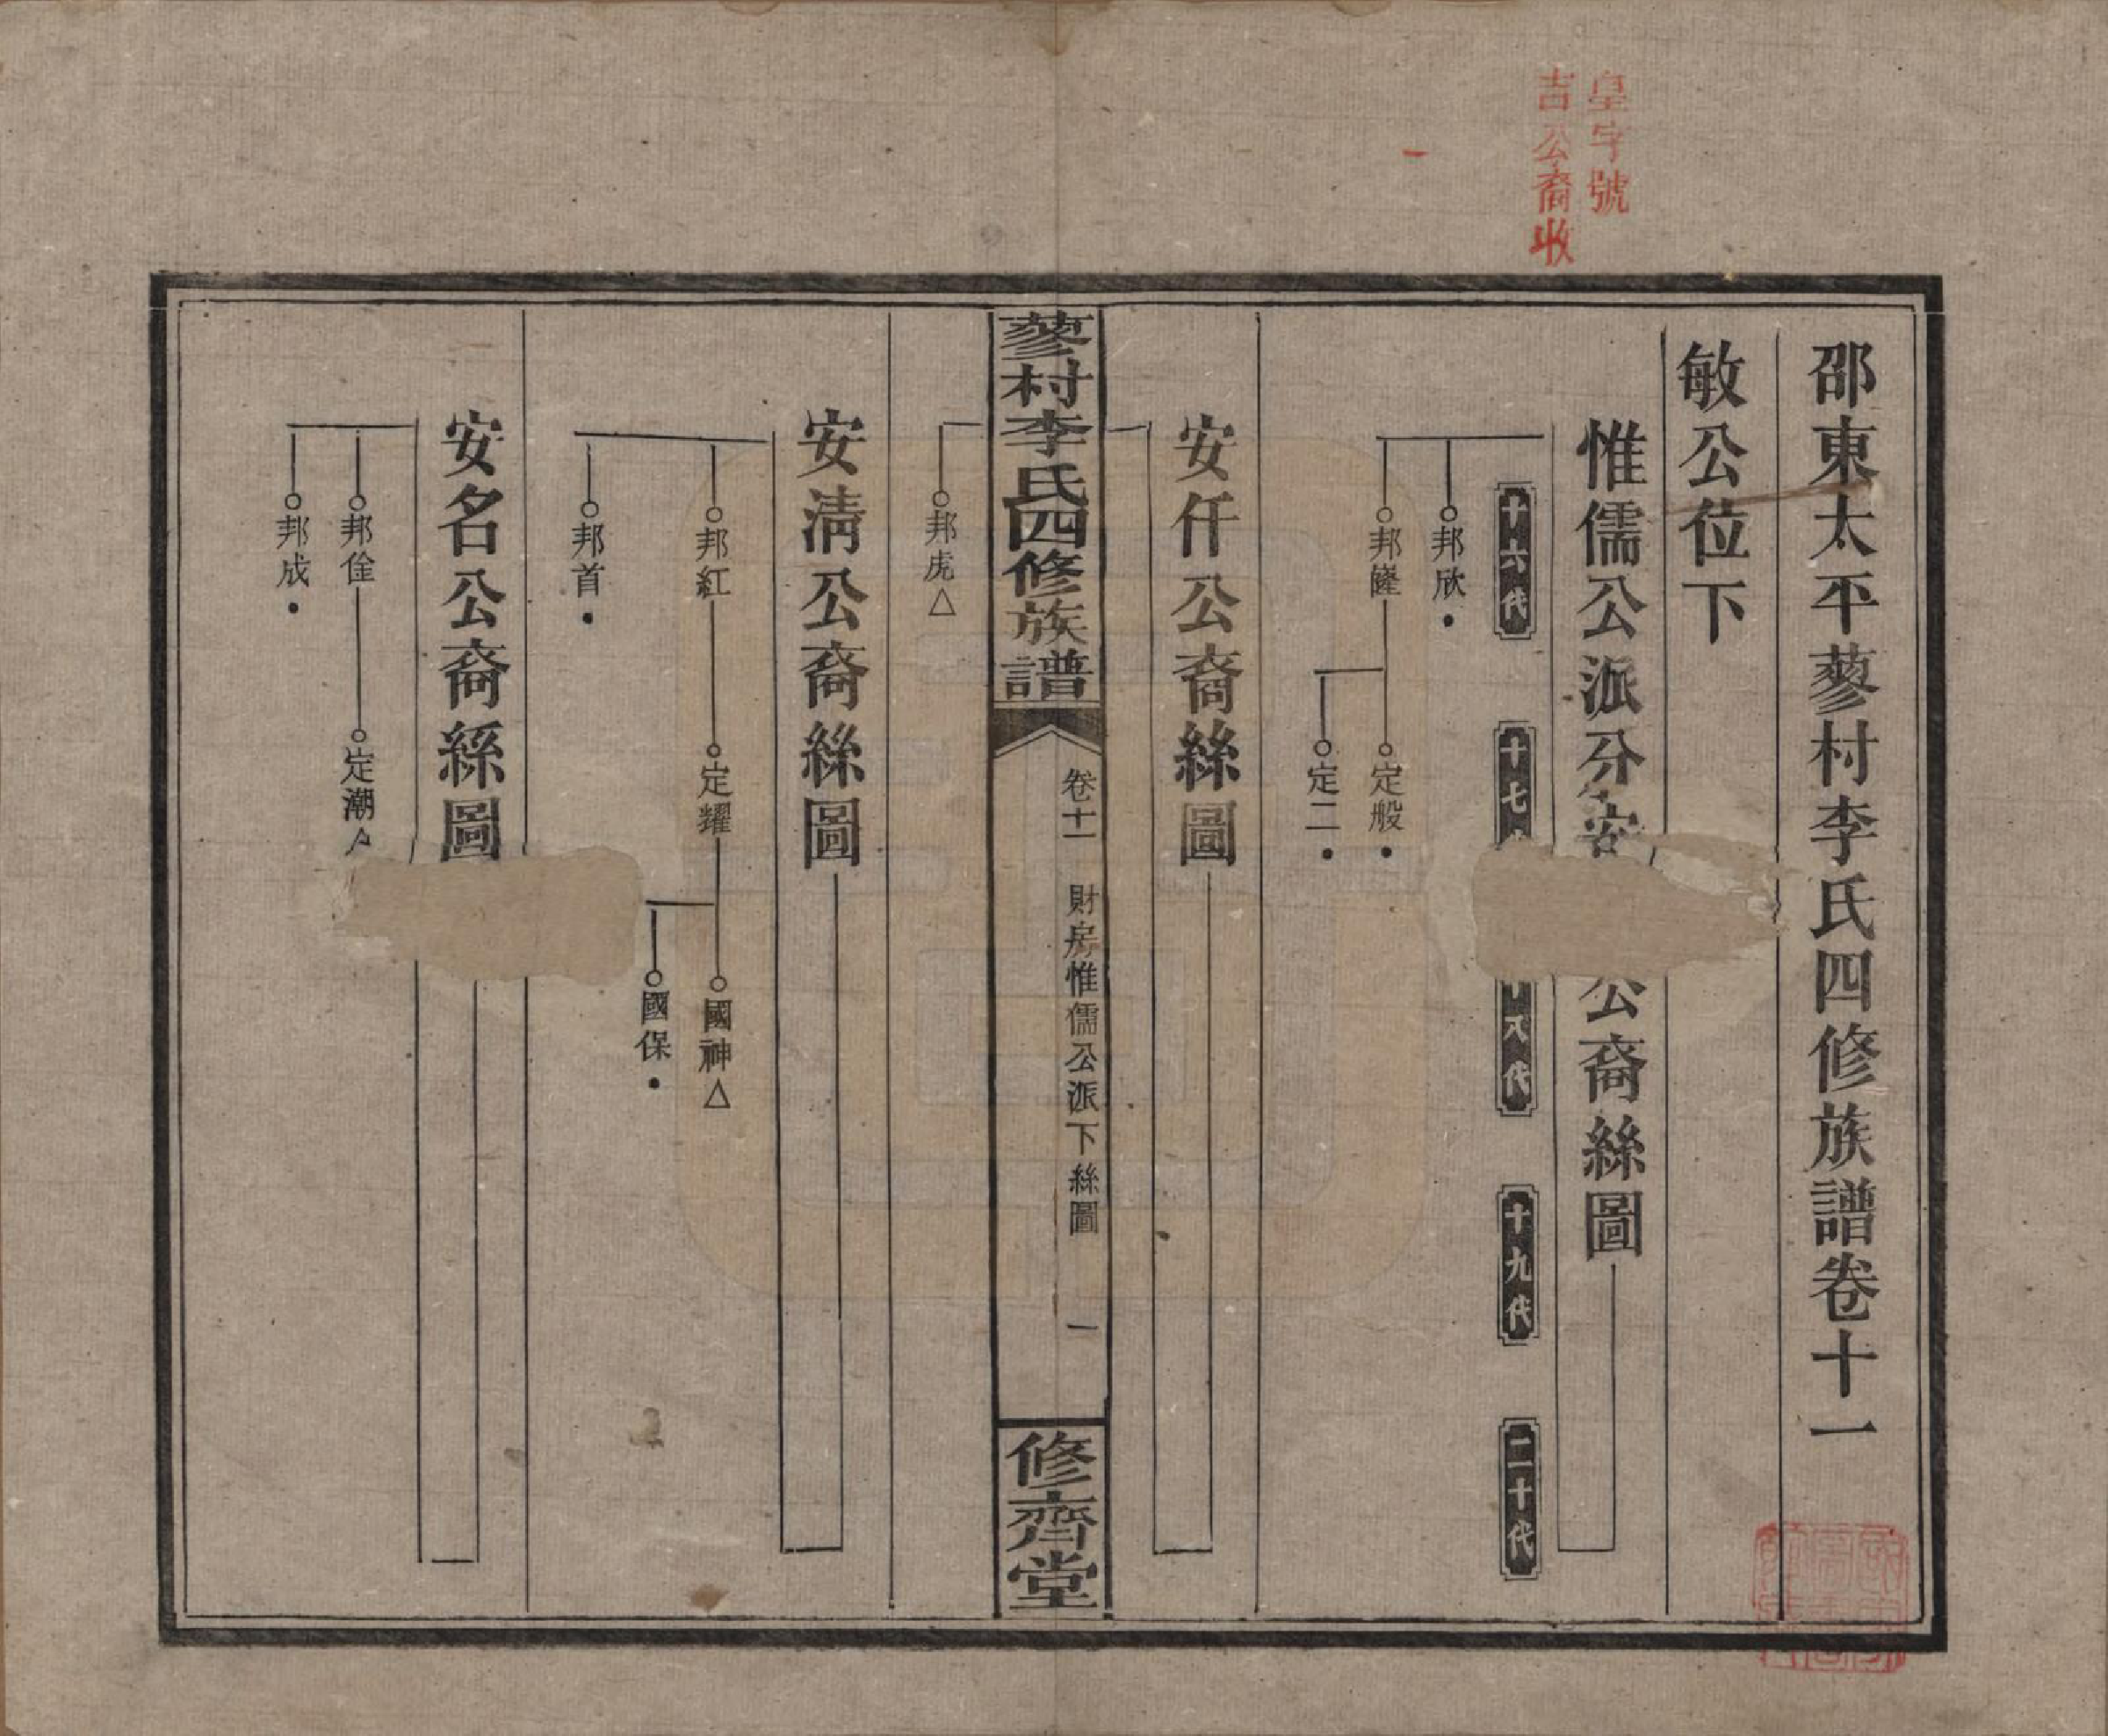 皇字號
吉公裔收
邵東太平蓼村李氏四修族譜卷十一
敏公位下
惟儒公派分安
公裔絲圖
十六代
十七
八代
十九代
二十代
邦欣
邦隆
定般
定二
安仟公裔絲圖
蓼村李氏四修族譜
卷十一
財房惟儒公派下絲圖
一
修齊堂
邦虎
安清公裔絲圖
邦紅
定耀
國神
國保
邦首
安名公裔絲圖
邦佺
定潮
邦成